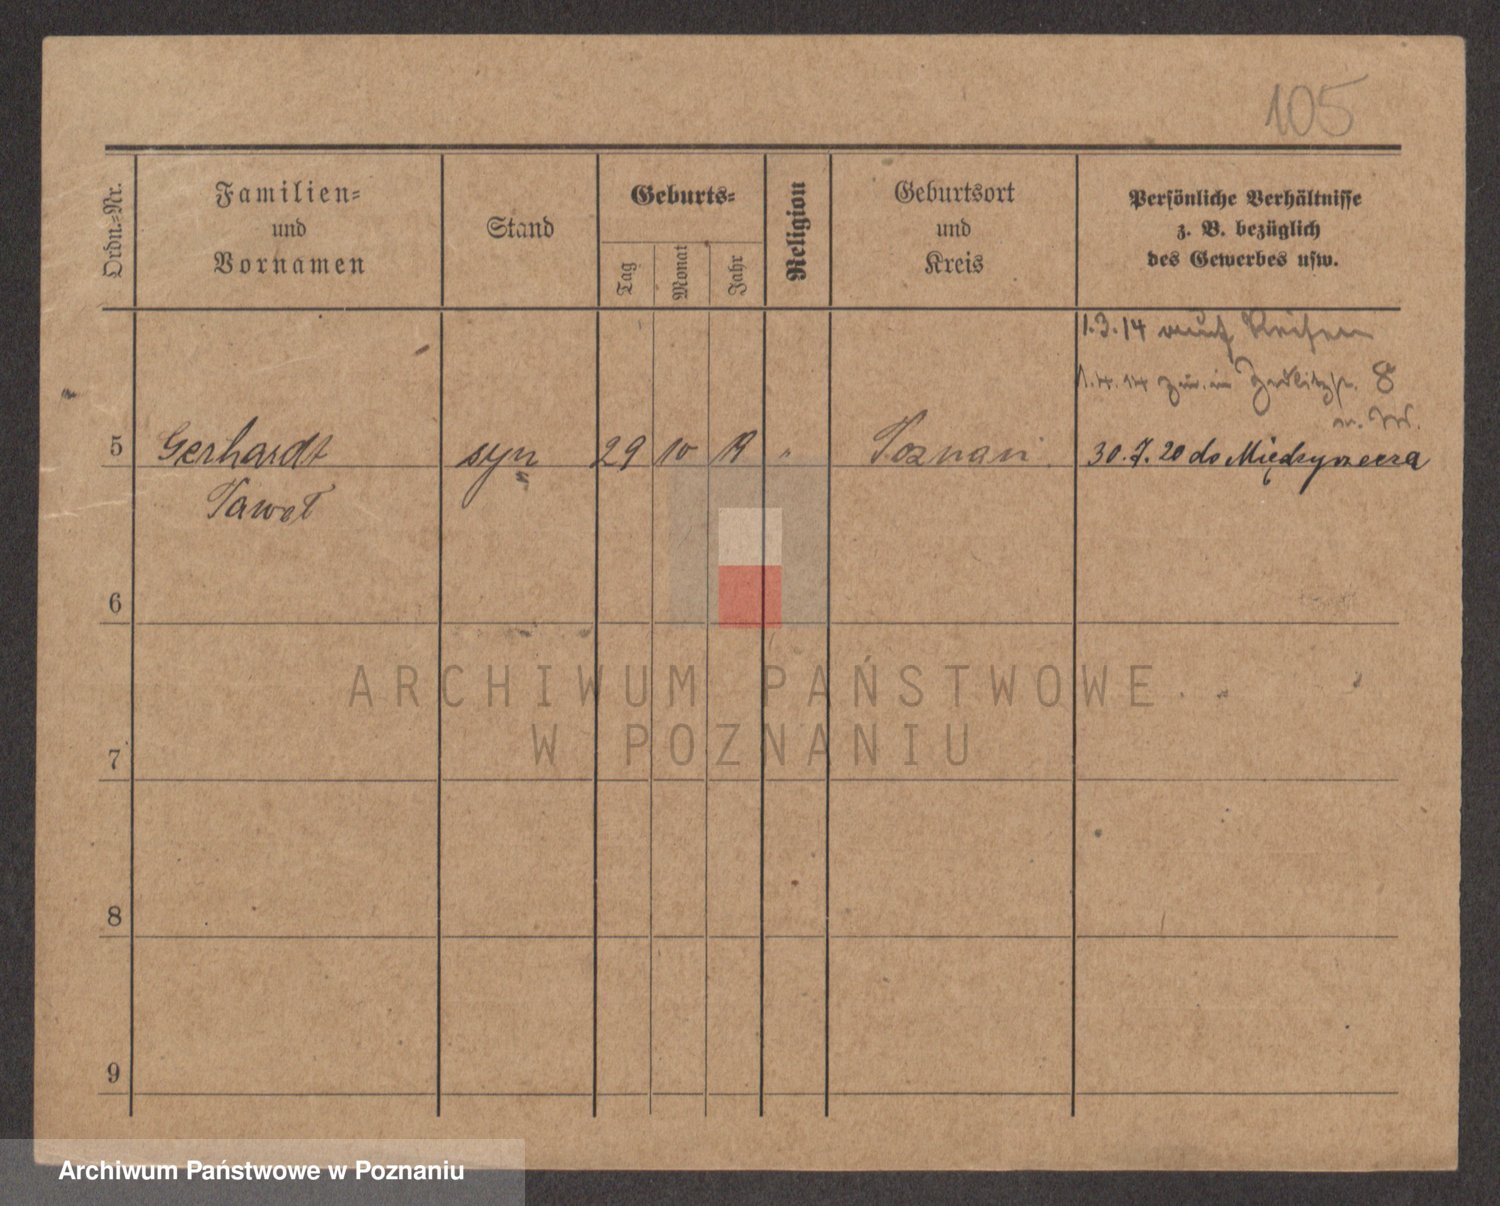 105
Ordn.=Nr.
Familien=
und
Vornamen
Stand
Geburts=
Tag
Monat
Jahr
Religion
Geburtsort
und
Kreis
Persönliche Verhältnisse
z. B. bezüglich
des Gewerbes usw.
1.3.14 auf Reisen
1.4.14 zur. in Zedlitzstr. 8
5 Gerhardt syn 29 10 19 " Poznań 30.7.20 do Międzyrzecza
Paweł
6
ARCHIWUM PAŃSTWOWE
W POZNANIU
7
8
9
Archiwum Państwowe w Poznaniu